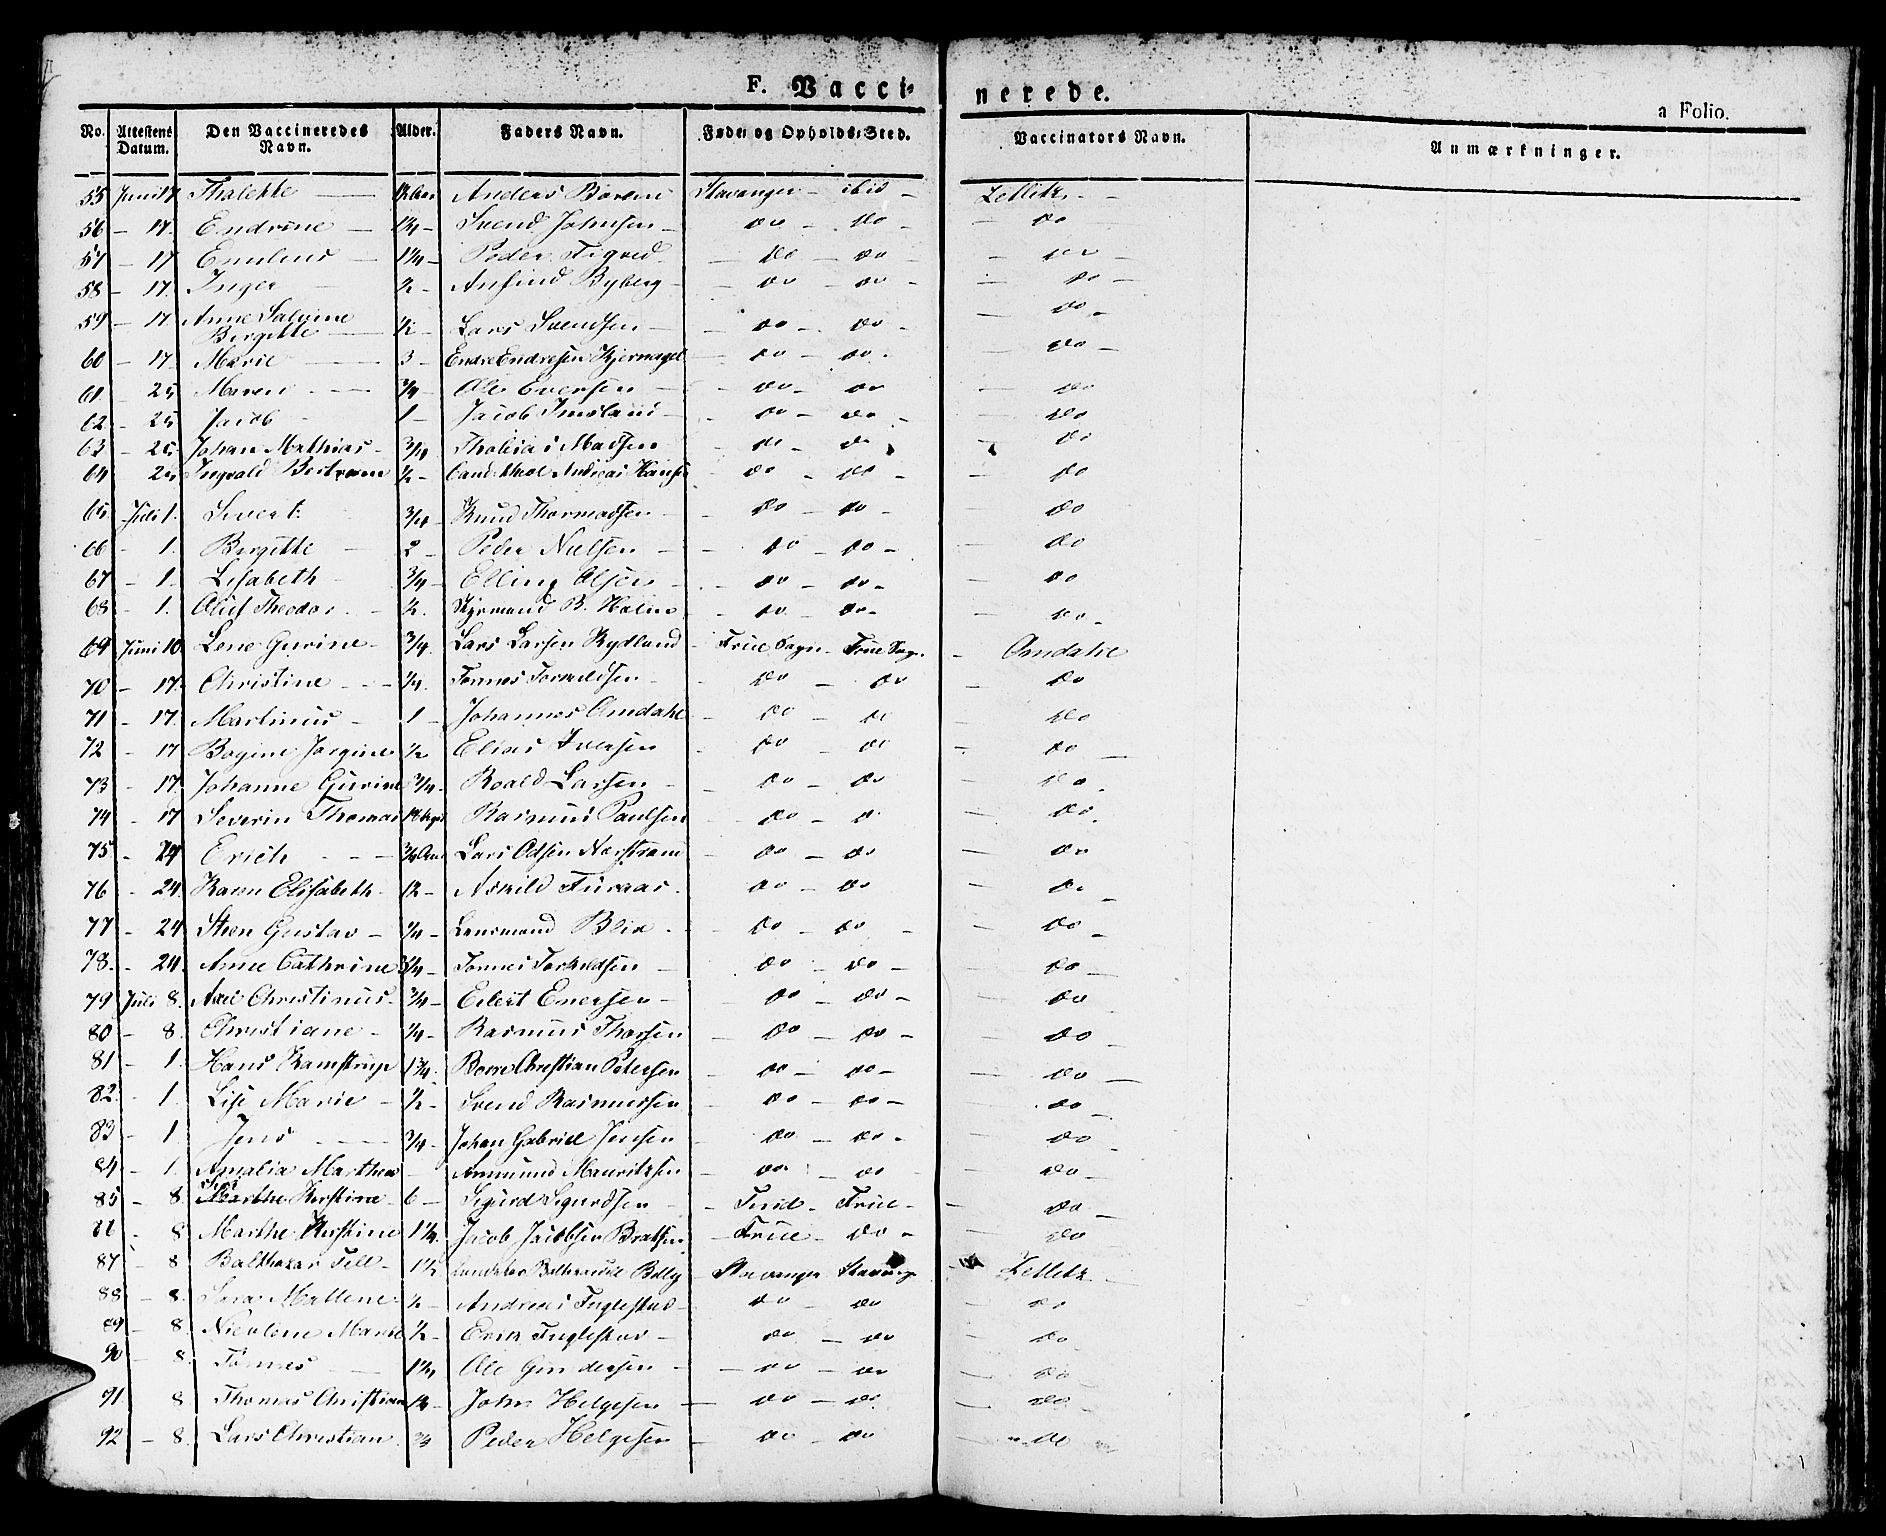 F. Vaccinerede.
a Folio.
No. Attestens Datum. Den Vaccineredes Navn. Alder. Faders Navn. Føde- og Opholds-Sted. Vaccinators Navn. Anmærkninger.
55 Juni 17 Thalette Anders Stavanger - ibid - Zetlitz
56 - 17. Endrine - 1/4 - Svend Johnsen - do - do - do
57 - 17 - 1/4 - Peder - do - do - do
58 - 17. Inger 1/2 - Anfind Byberg - do - do - do
59 - 17 Anne Salvine Birgitte 1/2 - Lars Svendsen - do - do - do
60 - 17. Marie 3 - Endre Endresen Kjernagel - do - do - do
61 - 25 Maren 3/4 - Ole Evensen - do - do - do
62 - 25 Jacob 1 - Jacob Imsland - do - do - do
63 - 25 Johan Mathias - 3/4 Tholias Madsen do - do - do
64 25 Ingvald Bertram 1/2 - Andreas Hansen do - do - do
65 Juli 1. Sivert 3/4 Knud Thormodsen - do - do - do
66 - 1. Birgitte - 2 - Peder Nielsen - do - do - do
67 - 1. Lisabeth 3/4 - Elling Olsen - do - do - do
68 - 1. Oluf Theodor - 1/2. B. Holm do - do - do
69 Juni 10 Lene Gurine - 3/4. Lars Larsen Rydland - Frue Sogn - Frue Sogn - Omdahl
70 - 17. Christine - 1/4. Tønnes Torkildsen - do - do do
71 - 17. Martinus - 1 - Johannes Omdahl - do - do do
72 - 17 Bogine Jørgine 1/2 Elias Iversen - do - do - do
73 - 17. Johanne Gurine 3/4 - Roald Larsen - do - do - do
74 - 17 Severin Thomas Rasmus Paulsen do - do - do
75 - 24 Erich - 3/4 Aar Lars Odsen Norstrand - do - do - do
76 - 24. Karen Elisabeth - 1/2 - Askild - do - do - do
77 - 24 Steen Gustav - 1/4 - Lensmand Blix - do - do - do
78 - 24. Anne Cathrine 3/4 - Tønnes Torkildsen - do - do - do
79 Juli 8. Christinus - 3/4 - Eilert Enersen - do - do - do
80 - 8. Christiane - 1/4 - Rasmus Thorsen - do - do - do
81 - 1. Hans Kamstrup 1 3/4. Christian Petersen - do - do - do
82 - 1. Lise Marie - 1/2 - Svend Rasmussen - do - do - do
83 - 1 Jens - 3/4 - Johan Gabriel Jensen - do - do - do
84 - 1. Amalia Marthea - Ammund Mauritzsen - do - do - do
85 - 8 Kirstine - 6 - Sigurd Sigurdsen - Frue - Frue - do
86 - 8 Marthe Kirstine 1 1/4. Jacob Jacobsen - Frue - do - do
87 - 8 Balthazar Tell - 1 1/2 - Stavanger Stavanger - Zetlitz
88 - 8. Sara Mallene 1/2 - Andreas Fuglestad - do - do - do
89 - 8. Nicoline Marie 1/2 - Erik Fuglestad - do - do - do
90 - 8. Tønnes Ole Gundersen - do - do - do
91 8 Thomas Christian 1/2 - John Helgesen - do - do - do
92 - 8. Lars Christian 3/4 - Peder Helgesen - do - do do